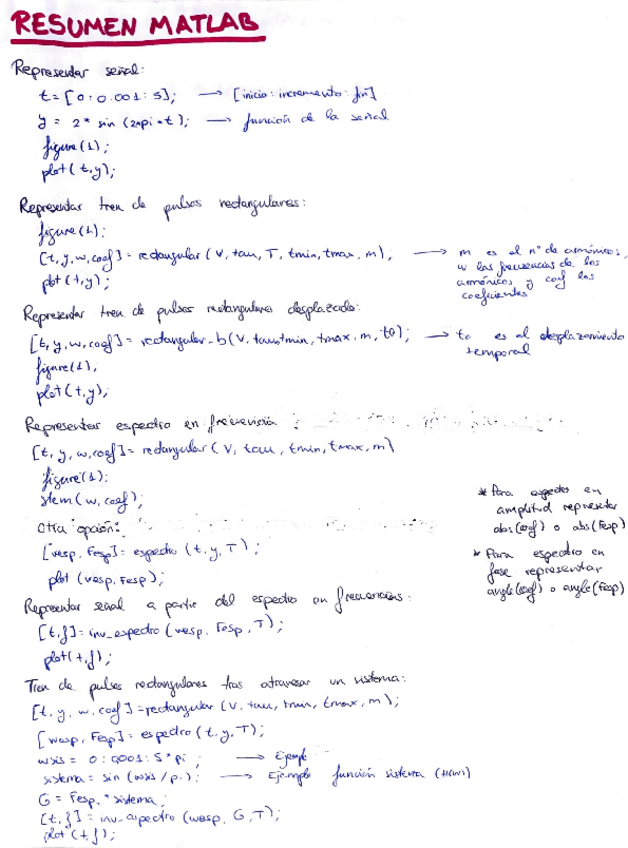 RESUMEN MATLAB
Representar señal:
t = [0:0.001:5]; → [inicio:incremento:fin]
y = 2* sin (2*pi*t); → función de la señal
figure(1);
plot(t,y);
Representar tren de pulsos rectangulares:
figure(1);
[t,y,w,coef] = rectangular (V, tau, T, tmin, tmax, m); → m es el nº de armónicos,
w las frecuencias de los
armónicos y coef los
coeficientes
plot(t,y);
Representar tren de pulsos rectangulares desplazado:
[t,y,w,coef] = rectangular_b(V, tau, tmin, tmax, m, t0); → t0 es el desplazamiento
temporal
figure(1),
plot(t,y);
Representar espectro en frecuencia:
[t,y,w,coef] = rectangular (V, tau, tmin, tmax, m)
figure(1);
stem(w,coef);
Otra opción:
[wesp, Fesp] = espectro (t,y,T);
plot (wesp, Fesp);
* Para espectro en
amplitud representar
abs(coef) o abs(Fesp)
* Para espectro en
fase representar
angle(coef) o angle(Fesp)
Representar señal a partir del espectro en frecuencias:
[t,f] = inv_espectro (wesp, Fesp, T);
plot(t,f);
Tren de pulsos rectangulares tras atravesar un sistema:
[t,y,w,coef] = rectangular (V, tau, tmin, tmax, m);
[wesp, Fesp] = espectro (t,y,T);
wsis = 0:0.001:5*pi; → Ejemplo
sistema = sin (wsis/pi); → Ejemplo función sistema (H(w))
G = Fesp.*sistema;
[t,f] = inv_espectro (wesp, G, T);
plot(t,f);